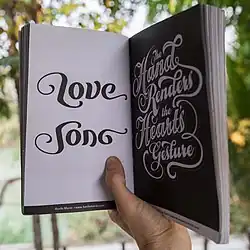 Love
Song
The
Hand
Renders
the
Hearts
Gesture